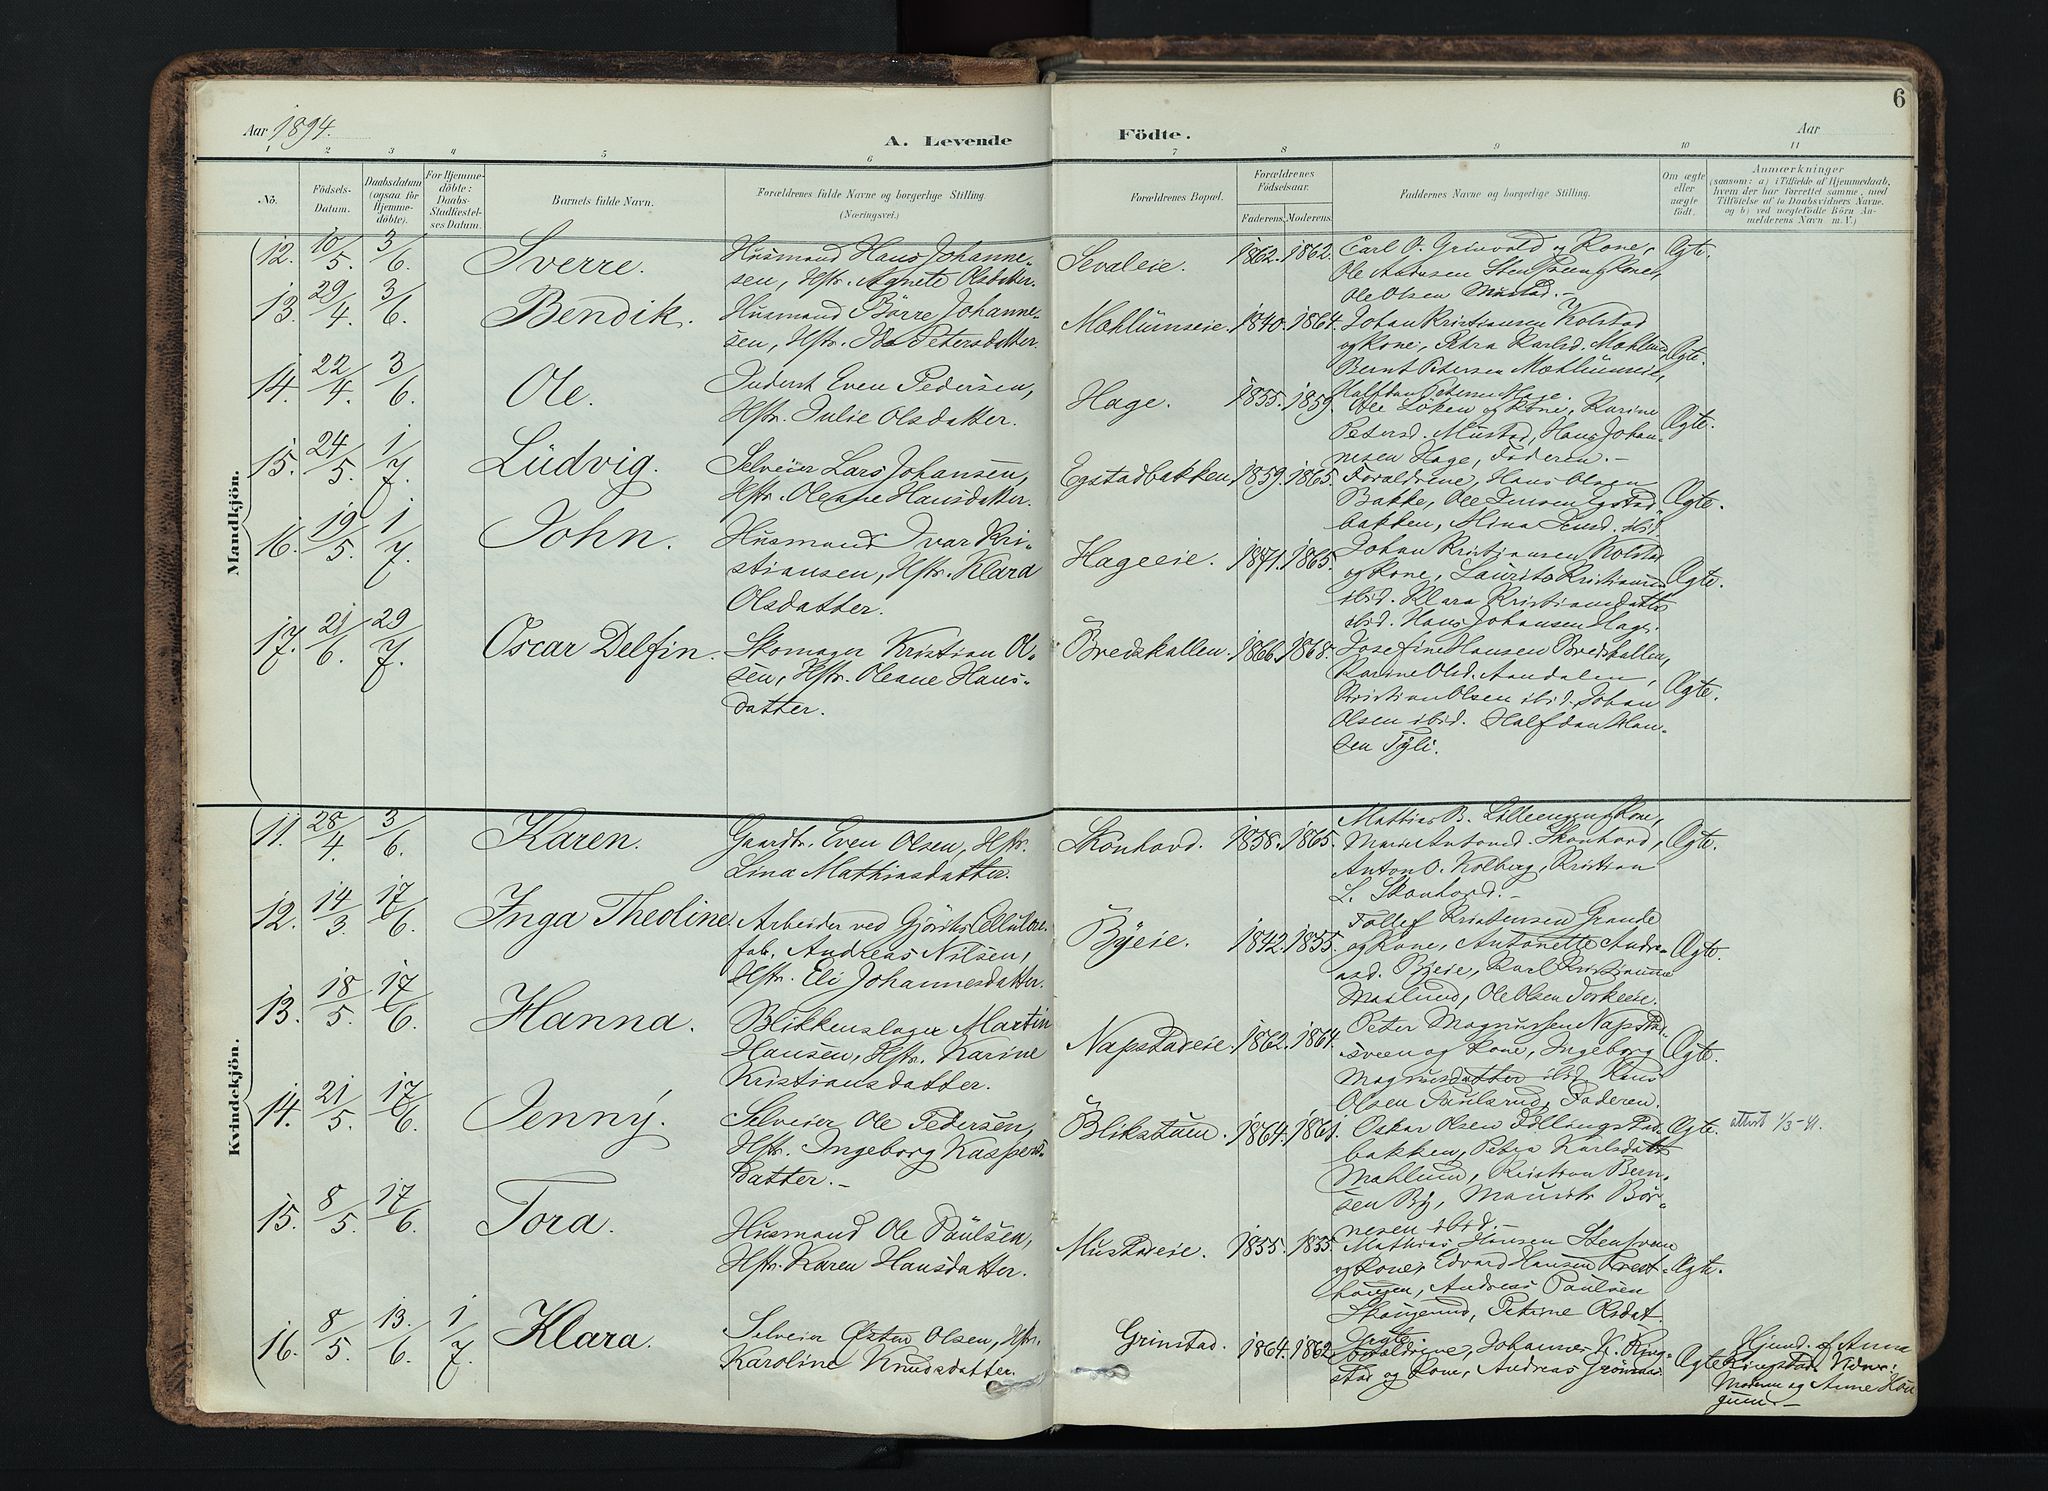 6
Aar 1894.
A. Levende
Födte.
Aar
1 2 3 4 5 6 7 8 9 10 11
No.
Födsels-
Datum.
Daabsdatum
(ogsaa for
Hjemme-
döbte).
For Hjemme-
döbte:
Daabs-
Stadfæstel-
ses Datum.
Barnets fulde Navn.
Forældrenes fulde Navne og borgerlige Stilling.
(Næringsvei.)
Forældrenes Bopæl.
Forældrenes
Födselsaar.
Faderens. Moderens.
Faddernes Navne og borgerlige Stilling.
Om ægte
eller
uægte
födt.
Anmærkninger
(saasom: a) i Tilfælde af Hjemmedaab,
hvem der har forrettet samme, med
Tilföielse af to Daabsvidners Navne.
og b) ved uægtefödte Börn An-
melderens Navn m. V.)
Mandkjön.
12. 10/5. 3/6. Sverre.
Husmand Hans Johanne-
sen, Hstr. Agnete Olsdatter.
Sevaleie. 1862. 1862.
Carl O. Grinvold og Kone,
Ole Andersen og Kone,
Ole Olsen Mustad.-
Ægte.
13. 29/4. 3/6. Bendik.
Husmand Börre Johanne-
sen, Hstr. Ida Petersdatter.
Mæhlumseie. 1840. 1864.
Johan Kristiansen Kolstad
og Kone, Petra Karlsd. Mæhlum,
Bernt Petersen Mæhlumseie,
Halfdan Petersen Hage.
Ægte.
14. 22/4. 3/6. Ole.
Inderst Even Pedersen,
Hstr. Julie Olsdatter.
Hage. 1855. 1859.
Ole Löken og Kone, Karine
Petersd. Mustad, Hans Johan-
nesen Hage, Faderen.-
Ægte.
15. 24/5. 1/7. Ludvig.
Selveier Lars Johansen,
Hstr. Oleane Hansdatter.
Egstadbakken. 1859. 1865.
Forældrene, Hans Olsen
Bakke, Ole Jensen Egstad-
bakken, Mina Jensd. ibid.
Ægte.
16. 19/5. 1/7. John.
Husmand Ivar Kri-
stiansen, Hstr. Klara
Olsdatter.
Hageeie. 1871. 1865.
Johan Kristiansen Kolstad
og Kone, Laurits Kristiansen
ibid. Klara Kristiansdatter
ibid. Hans Johansen Hage.
Ægte.
17. 21/6. 29/7. Oscar Delfin.
Skomager Kristian Ol-
sen, Hstr. Oleane Hans-
datter.
Bredskallen. 1866. 1868.
Josefine Hansen Bredskallen,
Karine Olsd. Aandalen,
Kristian Olsen ibid. Johan
Olsen ibid. Halfdan Han-
sen Tyli.
Ægte.
Kvindekjön.
11. 28/4. 3/6. Karen.
Gaardbr. Even Olsen, Hstr.
Lina Mathiasdatter.
Skonhovd. 1858. 1865.
Mathias B. Lilleengen og Kone,
Marie Antonsd. Skonhovd,
Anton O. Kolberg, Kristian
L. Skonhovd.-
Ægte.
12. 14/3. 17/6. Inga Theoline.
Arbeider ved Gjöviks Cellulose-
fab. Andreas Nilsen,
Hstr. Eli Johannesdatter.
Byeie. 1842. 1855.
Tollef Kristensen Grande
og Kone, Antonette Andre-
asd. Byeie, Karl Kristiansen
Mæhlum, Ole Olsen Torkeeie.
Ægte.
13. 18/5. 17/6. Hanna.
Blikkenslager Martin
Hansen, Hstr. Karine
Kristiansdatter.
Napstadeie. 1862. 1864.
Peter Magnussen Napstad-
sveen og Kone, Ingeborg
Magnusdatter ibid. Hans
Olsen Paulsrud, Faderen.
Ægte.
14. 21/5. 17/6. Jenny.
Selveier Ole Pedersen,
Hstr. Ingeborg Kaspers-
datter.-
Blikstuen. 1864. 1861.
Oskar Olsen
bakken, Petra Karlsdatter
Mæhlum, Kristian Bern-
sen By, Maurits Bör-
resen ibid.-
Ægte. attest 1/3-41.
15. 8/5. 17/6. Tora.
Husmand Ole Paulsen,
Hstr. Karen Hansdatter.
Mustadeie. 1855. 1855.
Mathias Hansen Stensveen
og Kone, Edvard Hansen
haugen, Andreas Paulsen
Skaugerud, Petrine Olsdat-
Ægte.
16. 8/5. 13./6. 1/7. Klara.
Selveier Östen Olsen, Hstr.
Karoline Knudsdatter.
Grinstad. 1864. 1862.
Forældrene, Johannes K. Ring-
stad og Kone, Andreas
Ægte.
Hjemd. af Anna
Ringstad. Vidner:
Moderen og Anne